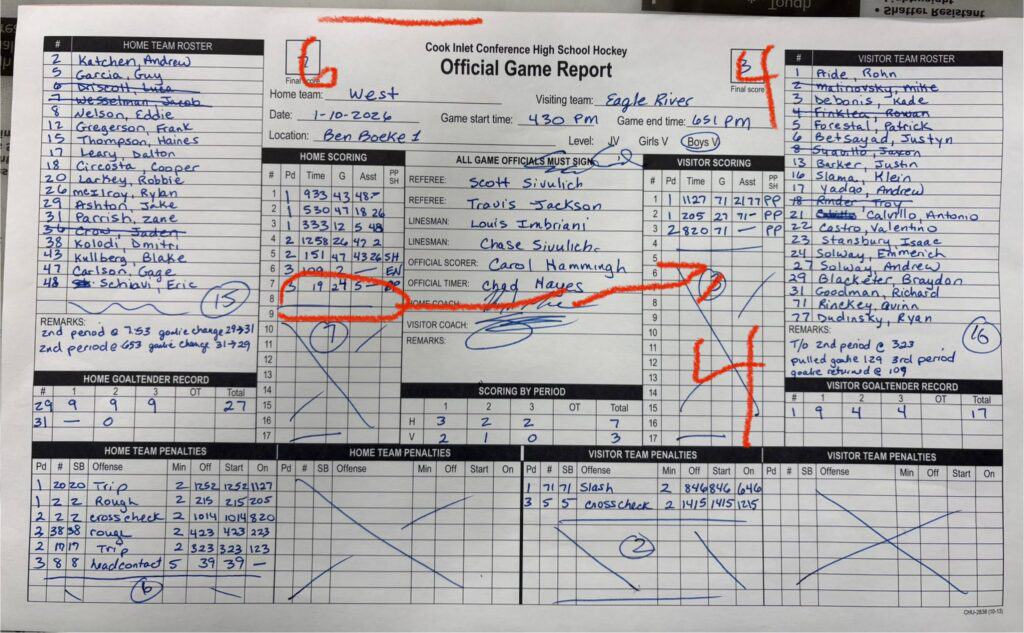 Tough
Lightweight
• Shatter Resistant
Cook Inlet Conference High School Hockey
Official Game Report
6
Final score
3
4
Final score
Home team: West
Visiting team: Eagle River
Date: 1-10-2026
Game start time: 430 PM
Game end time: 651 PM
Location: Ben Boeke 1
Level: JV Girls V Boys V
# HOME TEAM ROSTER
2 Katchen, Andrew
5 Garcia, Guy
6 Driscoll, Luca
7 Wesselman, Jacob
8 Nelson, Eddie
12 Gregerson, Frank
15 Thompson, Haines
17 Leary, Dalton
18 Circosta, Cooper
20 Larkey, Robbie
26 McIlroy, Rylan
29 Ashton, Jake
31 Parrish, Zane
36 Crow, Jaden
38 Kolodi, Dmitri
43 Kullberg, Blake
47 Carlson, Gage
48 Schiavi, Eric
15
REMARKS:
2nd period @ 7:53 goalie change 29→31
2nd period @ 653 goalie change 31→29
HOME SCORING
# Pd Time G Asst PP SH
1 1 933 43 48 -
2 1 530 47 18 26
3 1 333 12 5 48
4 2 1258 26 47 2
5 2 151 47 43 26 SH
6 3 109 2 — EN
7 3 19 24 5 — PP
8
9
10
11
12
13
14
15
16
17
7
ALL GAME OFFICIALS MUST SIGN
REFEREE: Scott Sivulich
REFEREE: Travis Jackson
LINESMAN: Louis Imbriani
LINESMAN: Chase Sivulich
OFFICIAL SCORER: Carol Hammingh
OFFICIAL TIMER: Chad Hayes
HOME COACH:
VISITOR COACH:
REMARKS:
VISITOR SCORING
# Pd Time G Asst PP SH
1 1 1127 71 21 77 PP
2 1 205 27 71 - PP
3 2 820 71 — PP
4
5
6
7
8
9
10
11
12
13
14
15
16
17
3
4
# VISITOR TEAM ROSTER
1 Aide, Rohn
2 Malinovsky, Mike
3 Debonis, Kade
4 Finklea, Rowan
5 Forestal, Patrick
6 Betsayad, Justyn
13 Barker, Justin
16 Slama, Klein
17 Yadao, Andrew
18 Rinder, Troy
21 Calvillo, Antonio
22 Castro, Valentino
23 Stansbury, Isaac
24 Solway, Emmerich
27 Solway, Andrew
29 Blacketer, Braydon
31 Goodman, Richard
71 Rinckey, Quinn
77 Dudinsky, Ryan
16
REMARKS:
T/O 2nd period @ 323
pulled goalie 129 3rd period
goalie returned @ 109
HOME GOALTENDER RECORD
# 1 2 3 OT Total
29 9 9 9 27
31 — 0
SCORING BY PERIOD
1 2 3 OT Total
H 3 2 2 7
V 2 1 0 3
VISITOR GOALTENDER RECORD
# 1 2 3 OT Total
1 9 4 4 17
HOME TEAM PENALTIES
Pd # SB Offense Min Off Start On
1 20 20 Trip 2 1252 1252 1127
1 2 2 Rough 2 215 215 205
2 2 2 cross check 2 1014 1014 820
2 38 38 rough 2 423 423 223
2 17 17 Trip 2 323 323 123
3 8 8 headcontact 5 39 39 —
6
HOME TEAM PENALTIES
Pd # SB Offense Min Off Start On
VISITOR TEAM PENALTIES
Pd # SB Offense Min Off Start On
1 71 71 Slash 2 846 846 646
3 5 5 crosscheck 2 1415 1415 1215
2
VISITOR TEAM PENALTIES
Pd # SB Offense Min Off Start On
CHU-2838 (10-13)